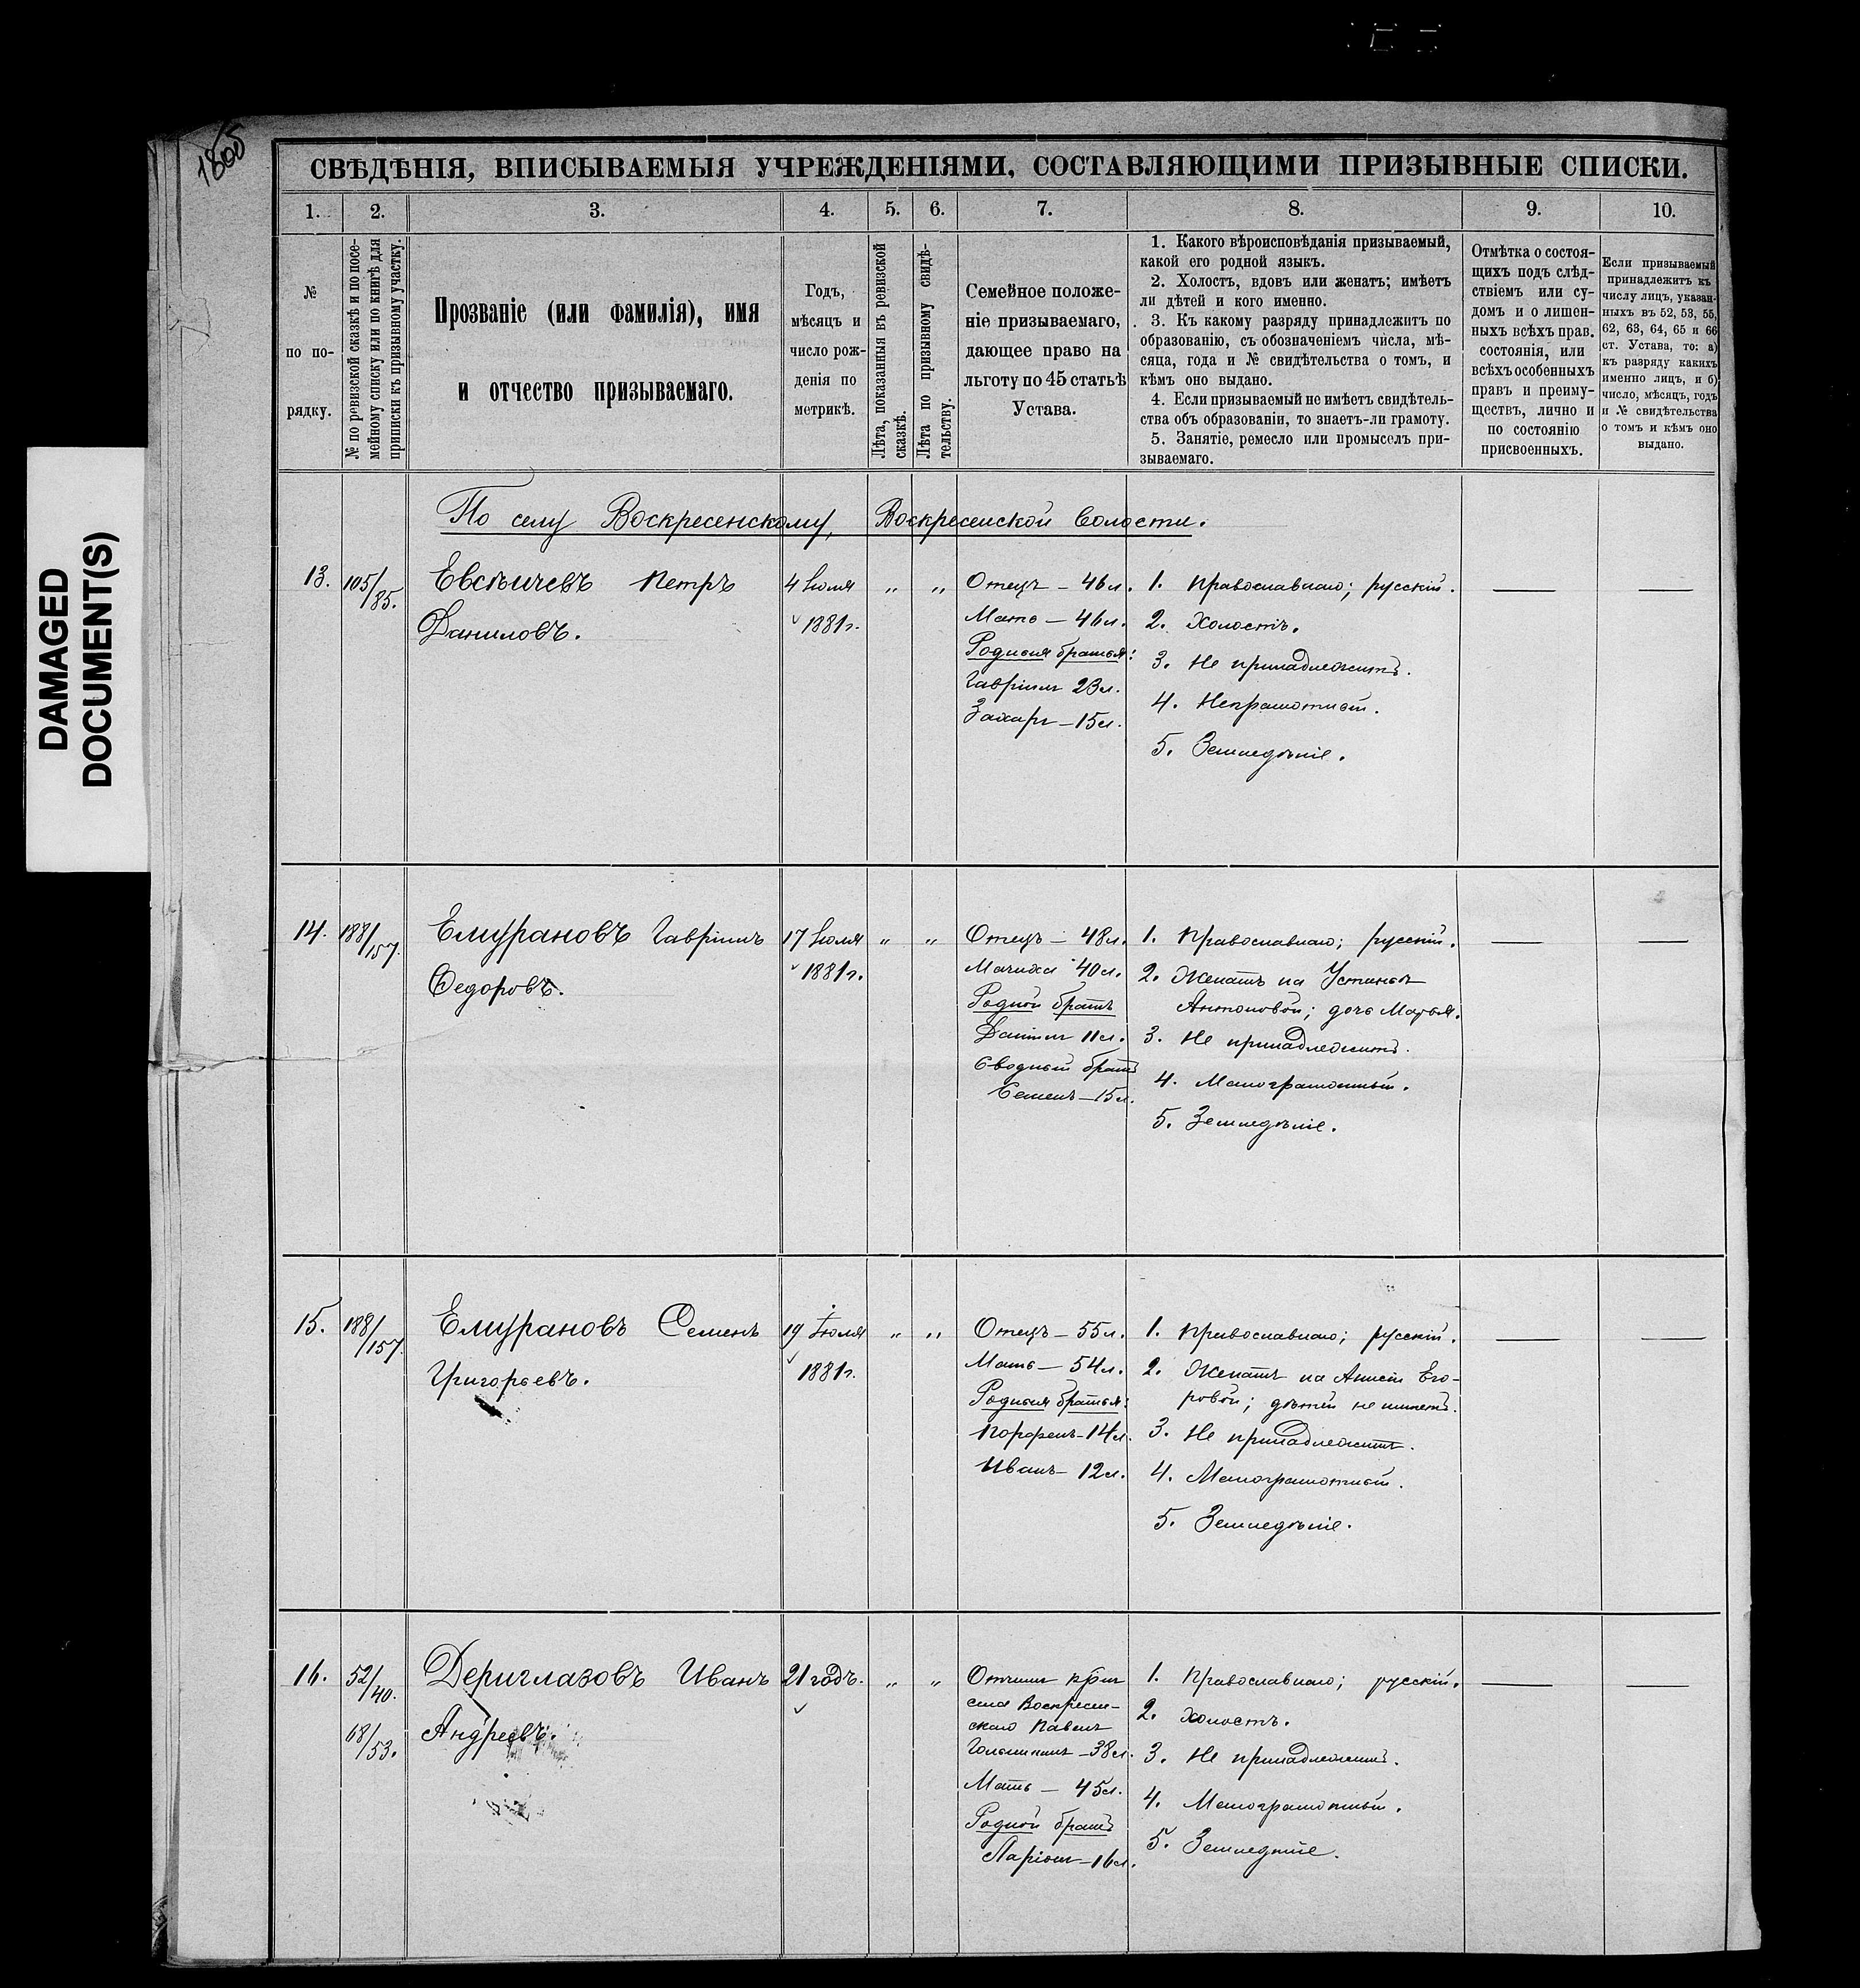 DAMAGED
DOCUMENT(S)
СВѢДѢНІЯ, ВПИСЫВАЕМЫЯ УЧРЕЖДЕНІЯМИ, СОСТАВЛЯЮЩИМИ ПРИЗЫВНЫЕ СПИСКИ.
1. 2. 3. 4. 5. 6. 7. 8. 9. 10.
№
по по-
рядку.
№ по ревизской сказкѣ и по посе-
мейному списку или по книгѣ для
приписки къ призывному участку.
Прозваніе (или фамилія), имя
и отчество призываемаго.
Годъ,
мѣсяцъ и
число рож-
денія по
метрикѣ.
Лѣта, показанныя въ ревизской
сказкѣ.
Лѣта по призывному свидѣ-
тельству.
Семейное положе-
ніе призываемаго,
дающее право на
льготу по 45 статьѣ
Устава.
1. Какого вѣроисповѣданія призываемый,
какой его родной языкъ.
2. Холостъ, вдовъ или женатъ; имѣетъ
ли дѣтей и кого именно.
3. Къ какому разряду принадлежитъ по
образованію, съ обозначеніемъ числа, мѣ-
сяца, года и № свидѣтельства о томъ, и
кѣмъ оно выдано.
4. Если призываемый не имѣетъ свидѣтель-
ства объ образованіи, то знаетъ-ли грамоту.
5. Занятіе, ремесло или промыселъ при-
зываемаго.
Отмѣтка о состоя-
щихъ подъ слѣд-
ствіемъ или су-
домъ и о лишен-
ныхъ всѣхъ прав.
состоянія, или
всѣхъ особенныхъ
правъ и преиму-
ществъ, лично и
по состоянію
присвоенныхъ.
Если призываемый
принадлежитъ къ
числу лицъ, указан-
ныхъ въ 52, 53, 55,
62, 63, 64, 65 и 66
ст. Устава, то: а)
къ разряду какихъ
именно лицъ, и б)
число, мѣсяцъ, годъ
и № свидѣтельства
о томъ и кѣмъ оно
выдано.
По селу Воскресенскому, Воскресенской волости.
13. 105/85.
Евсѣичевъ Петръ
Даниловъ.
4 Іюля
1881г.
„ „
Отецъ — 46л.
Мать — 46л.
Родные братья:
Гавріилъ 23л.
Захаръ — 15л.
1. Православнаго; русскій.
2. Холостъ.
3. Не принадлежитъ.
4. Неграмотный.
5. Земледѣліе.
14. 188/157.
Емурановъ Гавріилъ
Федоровъ.
17 Іюля
1881г.
„ „
Отецъ — 48л.
Мачиха 40л.
Родной братъ
Даніилъ 11л.
Сводный братъ
Семенъ — 15л.
1. Православнаго; русскій.
2. Женатъ на Устиньѣ
Антоновой; дочь Марья.
3. Не принадлежитъ.
4. Малограмотный.
5. Земледѣліе.
15. 188/157.
Емурановъ Семенъ
Григорьевъ.
19 Іюля
1881г.
„ „
Отецъ — 55л.
Мать — 54л.
Родные братья:
Порфенъ — 14л.
Иванъ — 12л.
1. Православнаго; русскій.
2. Женатъ на Анисіи Его-
ровой; дѣтей не имѣетъ.
3. Не принадлежитъ.
4. Малограмотный.
5. Земледѣліе.
16. 52/40.
68/53.
Дериглазовъ Иванъ
Андреевъ.
21 годъ.
„ „
Отчимъ
села Воскресен-
скаго Павелъ
— 38л.
Мать — 45л.
Родной братъ
Ларіонъ — 16л.
1. Православнаго; русскій.
2. Холостъ.
3. Не принадлежитъ.
4. Малограмотный.
5. Земледѣліе.